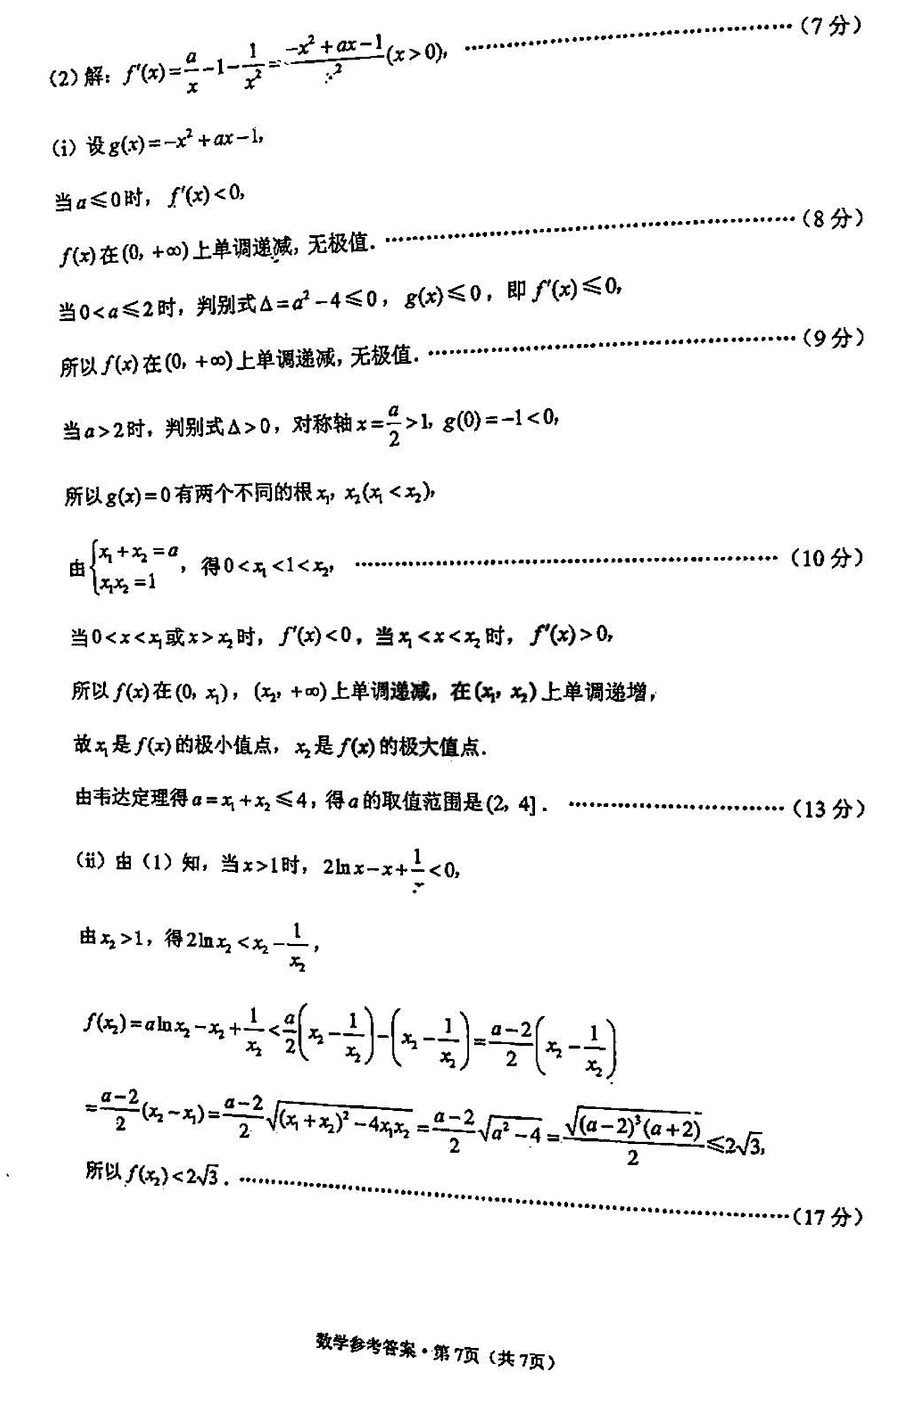 (2)解：f′(x)=a/x−1−1/x²=(−x²+ax−1)/x²(x>0)，……………………（7 分）
(i) 设g(x)=−x²+ax−1，
当a⩽0时，f′(x)<0，
f(x)在(0，+∞)上单调递减，无极值．……………………（8 分）
当0<a⩽2时，判别式Δ=a²−4⩽0，g(x)⩽0，即f′(x)⩽0，
所以f(x)在(0，+∞)上单调递减，无极值．……………………（9 分）
当a>2时，判别式Δ>0，对称轴x=a/2>1，g(0)=−1<0，
所以g(x)=0有两个不同的根x₁，x₂(x₁<x₂)，
由{x₁+x₂=a，x₁x₂=1，得0<x₁<1<x₂，……………………（10 分）
当0<x<x₁或x>x₂时，f′(x)<0，当x₁<x<x₂时，f′(x)>0，
所以f(x)在(0，x₁)，(x₂，+∞)上单调递减，在(x₁，x₂)上单调递增，
故x₁是f(x)的极小值点，x₂是f(x)的极大值点．
由韦达定理得a=x₁+x₂⩽4，得a的取值范围是(2，4]．……………………（13 分）
(ii) 由（1）知，当x>1时，2lnx−x+1/x<0，
由x₂>1，得2lnx₂<x₂−1/x₂，
f(x₂)=alnx₂−x₂+1/x₂<a/2(x₂−1/x₂)−(x₂−1/x₂)=(a−2)/2(x₂−1/x₂)
=(a−2)/2(x₂−x₁)=(a−2)/2√((x₁+x₂)²−4x₁x₂)=(a−2)/2√(a²−4)=√((a−2)³(a+2))/2⩽2√3，
所以f(x₂)<2√3．……………………（17 分）
数学参考答案·第7页（共7页）